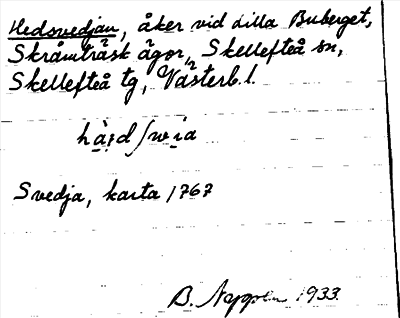 Hedsvedjan, åker vid Lilla Buberget,
Skråmträsk ägor, Skellefteå sn,
Skellefteå tg, Västerb. l.
Svedja, karta 1767
B. 1933.